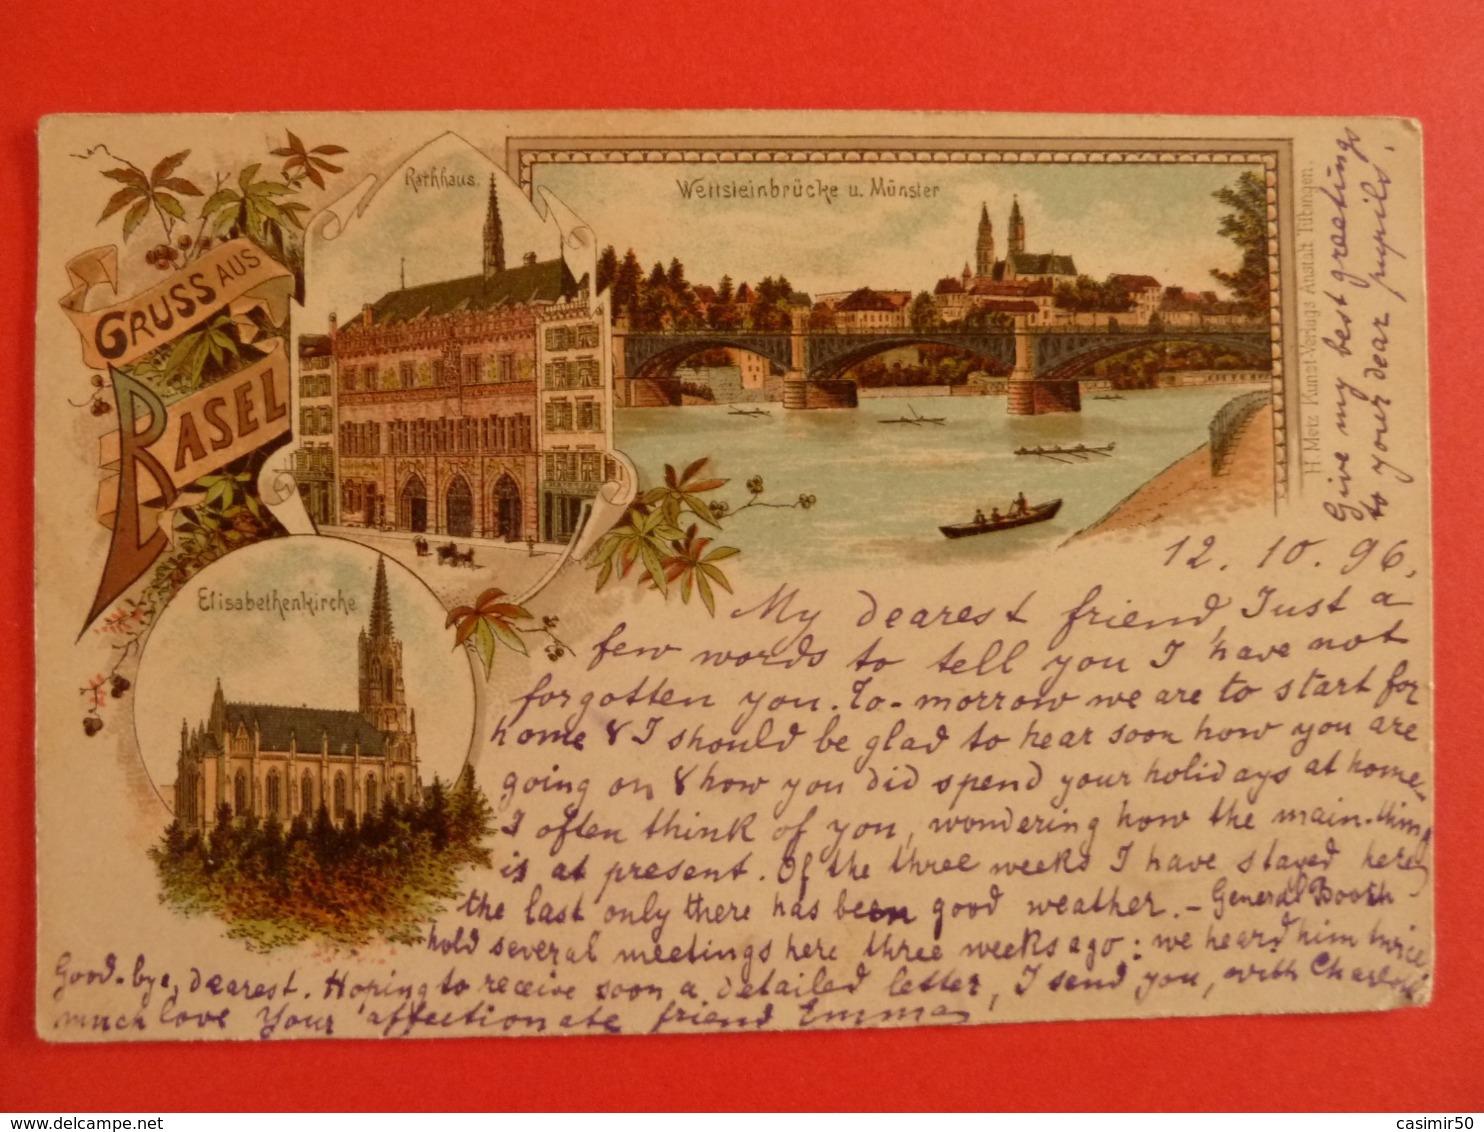 GRUSS AUS
BASEL
Rathhaus.
Wettsteinbrücke u. Münster
Elisabethenkirche
H. Metz Kunst-Verlags Anstalt Tübingen.
12. 10. 96.
My dearest friend, Just a
few words to tell you I have not
forgotten you. To-morrow we are to start for
home & I should be glad to hear soon how you are
going on & how you did spend your holidays at home.
I often think of you, wondering how the main-thing
is at present. Of the three weeks I have stayed here
the last only there has been good weather. – General Booth
hold several meetings here three weeks ago: we heard him twice
Good-bye, dearest. Hoping to receive soon a detailed letter, I send you, with Charlotte
much love Your affectionate friend Emma
Give my best greetings
to your dear pupils.
casimir50